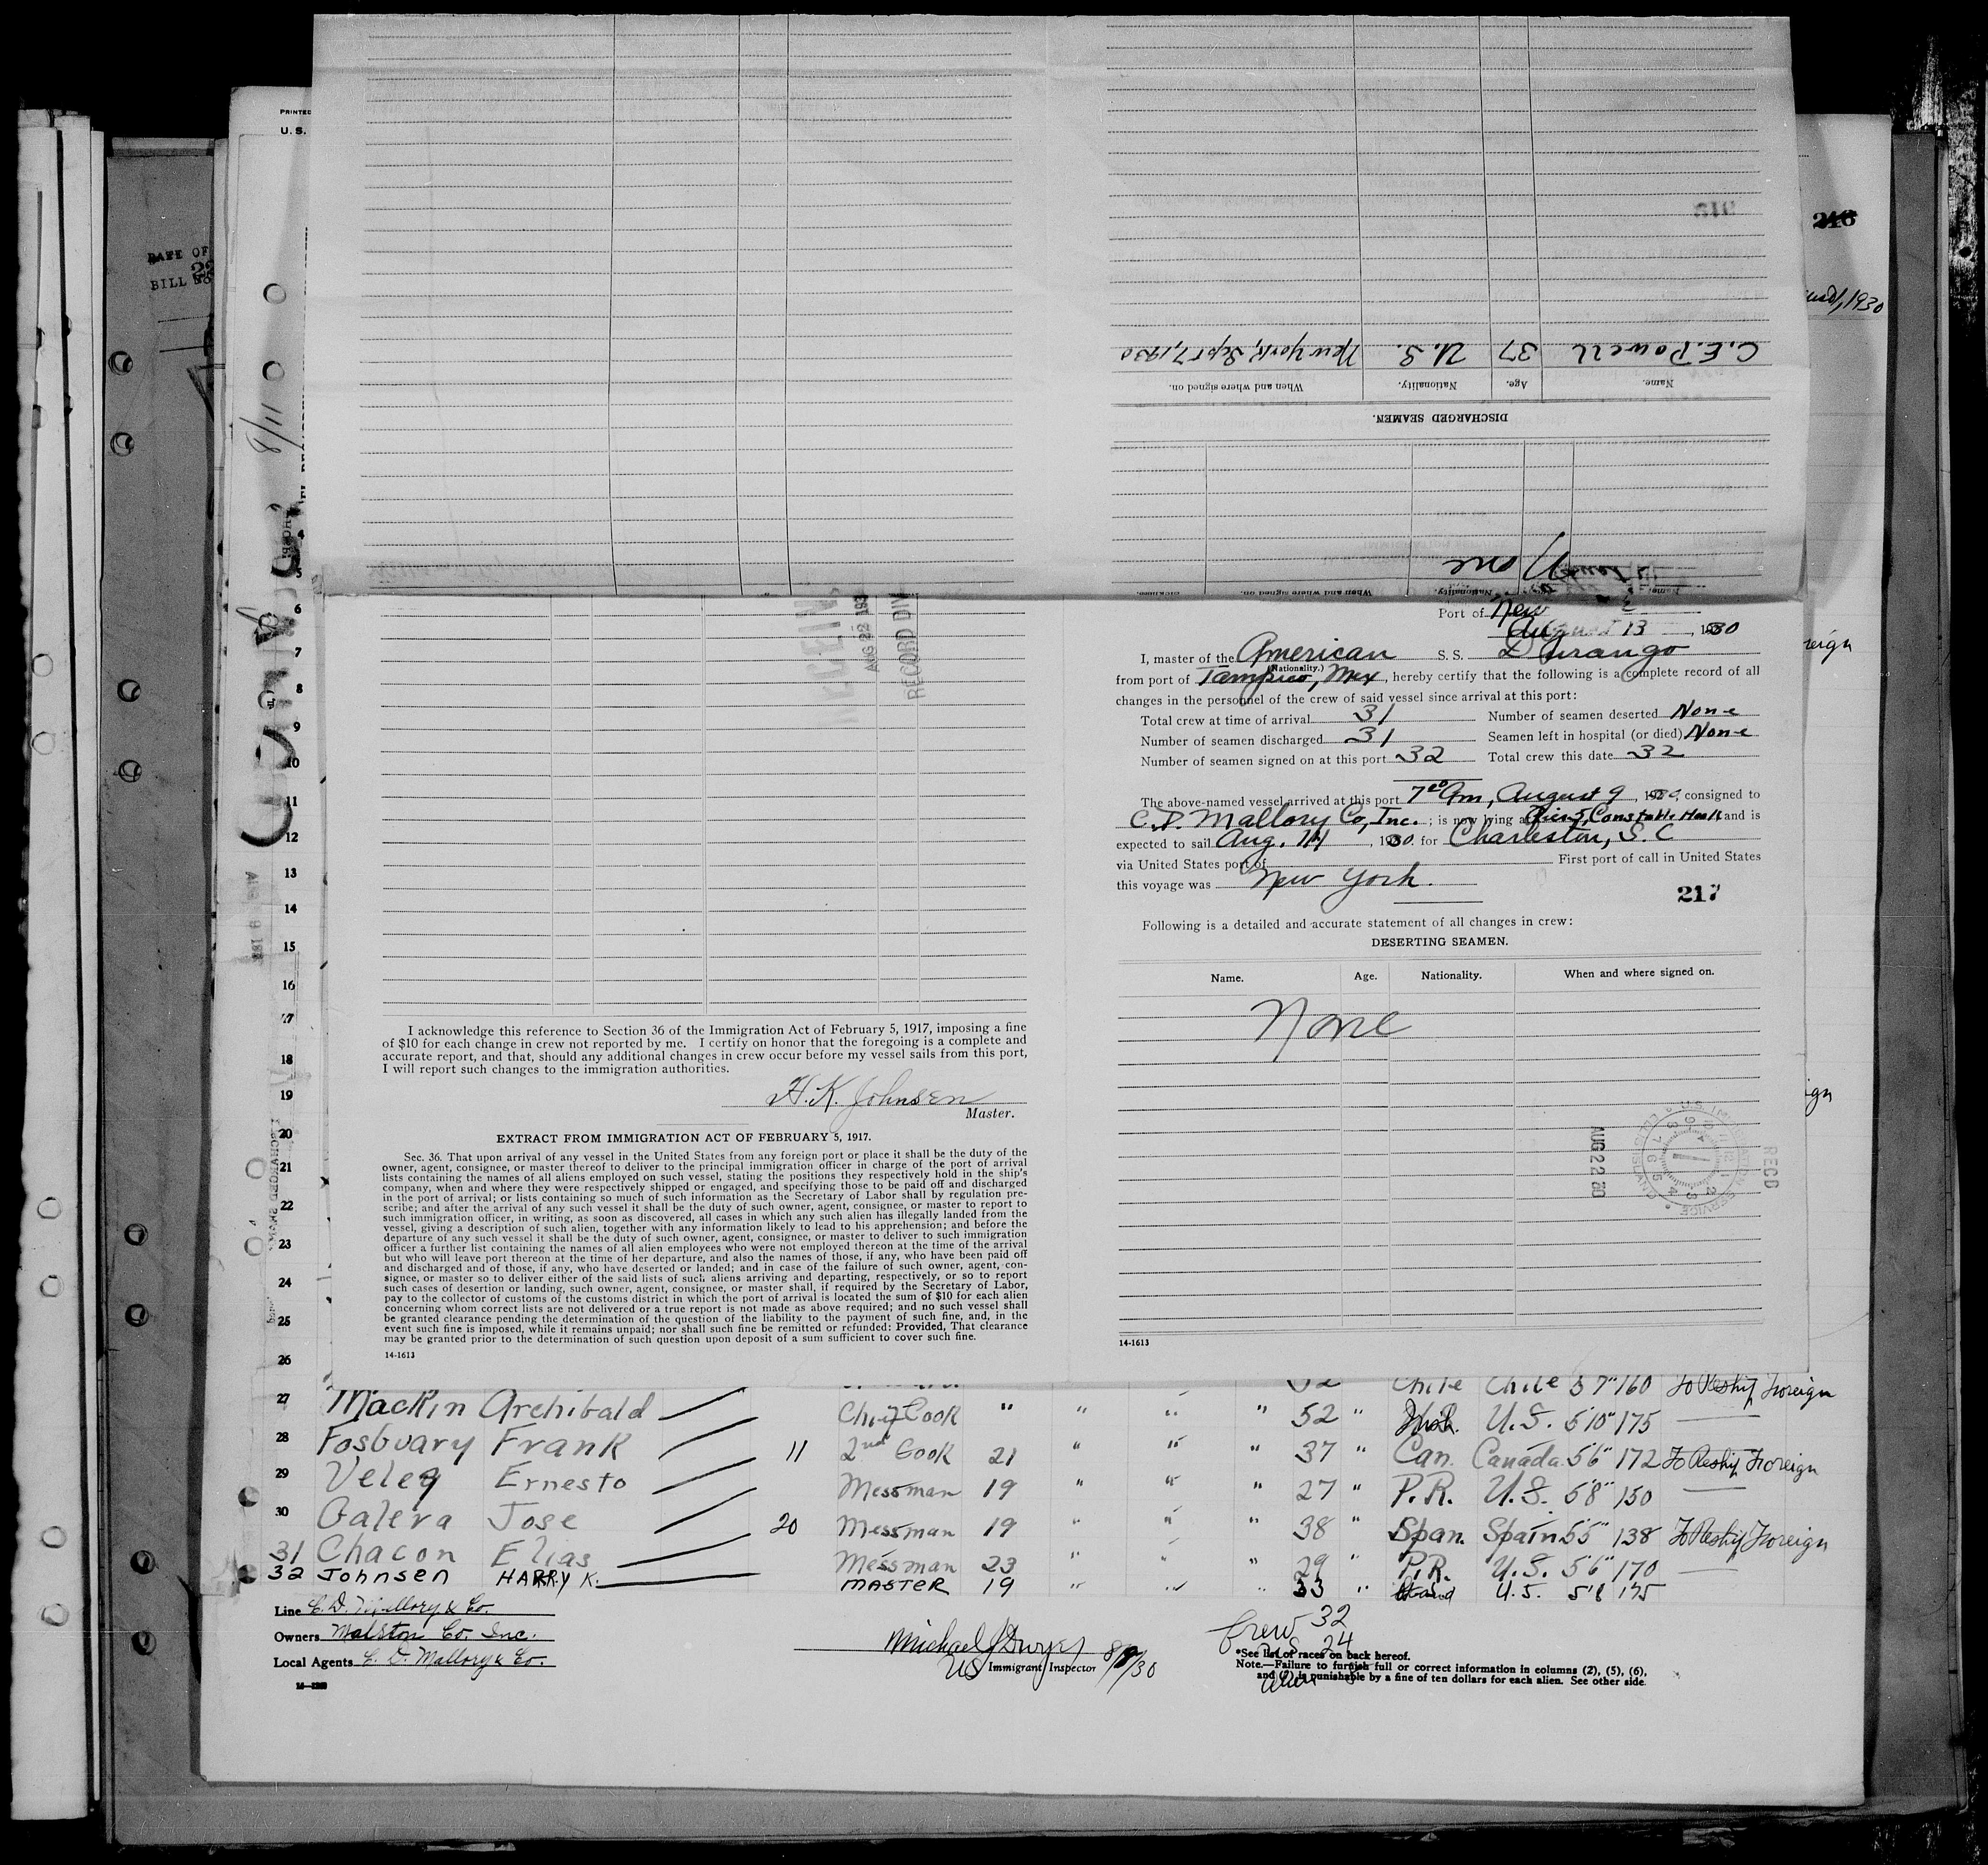 PRINTED
U. S.
BILL
8/11
216
1930
C.E. Powell 37 U.S. New York, Sept 7, 1930
Name. Age. Nationality. When and where signed on.
DISCHARGED SEAMEN.
None
Name. Nationality. When and where signed on.
Port of New
August 13, 1930
I, master of the American S. S. Durango
(Nationality.)
from port of Tampico, Mex, hereby certify that the following is a complete record of all
changes in the personnel of the crew of said vessel since arrival at this port:
Total crew at time of arrival 31 Number of seamen deserted None
Number of seamen discharged 31 Seamen left in hospital (or died) None
Number of seamen signed on at this port 32 Total crew this date 32
The above-named vessel arrived at this port 7 00 Am, August 9, 1930, consigned to
C.D. Mallory Co, Inc.; is now lying at Pier 5, Constable Hook and is
expected to sail Aug. 14, 1930 for Charleston, S. C
via United States port of First port of call in United States
this voyage was New York.
217
Following is a detailed and accurate statement of all changes in crew:
DESERTING SEAMEN.
Name. Age. Nationality. When and where signed on.
None
REC'D
AUG 22 30
14-1613
AUG 22 193
RECORD DIV
4
5
6
7
8
9
10
11
12
13
14
15
16
17
18
19
20
21
22
23
24
25
26
I acknowledge this reference to Section 36 of the Immigration Act of February 5, 1917, imposing a fine
of $10 for each change in crew not reported by me. I certify on honor that the foregoing is a complete and
accurate report, and that, should any additional changes in crew occur before my vessel sails from this port,
I will report such changes to the immigration authorities.
H. K. Johnsen
Master.
EXTRACT FROM IMMIGRATION ACT OF FEBRUARY 5, 1917.
Sec. 36. That upon arrival of any vessel in the United States from any foreign port or place it shall be the duty of the
owner, agent, consignee, or master thereof to deliver to the principal immigration officer in charge of the port of arrival
lists containing the names of all aliens employed on such vessel, stating the positions they respectively hold in the ship's
company, when and where they were respectively shipped or engaged, and specifying those to be paid off and discharged
in the port of arrival; or lists containing so much of such information as the Secretary of Labor shall by regulation pre-
scribe; and after the arrival of any such vessel it shall be the duty of such owner, agent, consignee, or master to report to
such immigration officer, in writing, as soon as discovered, all cases in which any such alien has illegally landed from the
vessel, giving a description of such alien, together with any information likely to lead to his apprehension; and before the
departure of any such vessel it shall be the duty of such owner, agent, consignee, or master to deliver to such immigration
officer a further list containing the names of all alien employees who were not employed thereon at the time of the arrival
but who will leave port thereon at the time of her departure, and also the names of those, if any, who have been paid off
and discharged and of those, if any, who have deserted or landed; and in case of the failure of such owner, agent, con-
signee, or master so to deliver either of the said lists of such aliens arriving and departing, respectively, or so to report
such cases of desertion or landing, such owner, agent, consignee, or master shall, if required by the Secretary of Labor,
pay to the collector of customs of the customs district in which the port of arrival is located the sum of $10 for each alien
concerning whom correct lists are not delivered or a true report is not made as above required; and no such vessel shall
be granted clearance pending the determination of the question of the liability to the payment of such fine, and, in the
event such fine is imposed, while it remains unpaid; nor shall such fine be remitted or refunded: Provided, That clearance
may be granted prior to the determination of such question upon deposit of a sum sufficient to cover such fine.
14-1613
Chile Chile 5'7" 160 To Reship Foreign
27 Mackin Archibald Chief Cook " " " " 52 " U.S. 5'10" 175
28 Fosbuary Frank 11 2nd Cook 21 " " " 37 " Can. Canada 5'6" 172 To Reship Foreign
29 Veleg Ernesto Messman 19 " " " 27 " P.R. U.S. 5'8" 150
30 Galera Jose 20 Messman 19 " " " 38 " Span. Spain 5'5" 138 To Reship Foreign
31 Chacon Elias Messman 23 " " " 29 " P.R. U.S. 5'6" 170
32 Johnsen HARRY K. MASTER 19 " " " 33 " U.S. 5'8 175
Line C. D. Mallory & Co.
Owners Malston Co. Inc.
Local Agents C. D. Mallory & Co.
Michael J Dwyer 8/9/30
US Immigrant Inspector
Crew 32
U S 24
Alien 8
*See list of races on back hereof.
Note.—Failure to furnish full or correct information in columns (2), (5), (6),
and (7) is punishable by a fine of ten dollars for each alien. See other side.